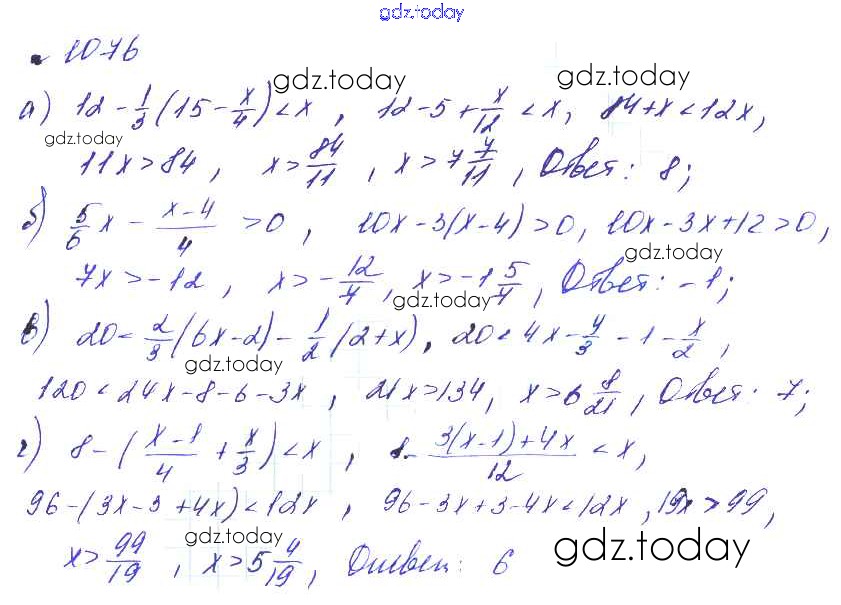 gdz.today
1076
gdz.today gdz.today
а) 12 - 1/3 (15 - x/4) < x, 12 - 5 + x/12 < x, 84 + x < 12x,
gdz.today
11x > 84, x > 84/11, x > 7 7/11, Ответ: 8;
б) 5/6 x - (x-4)/4 > 0, 10x - 3(x-4) > 0, 10x - 3x + 12 > 0,
gdz.today
7x > -12, x > -12/7, x > -1 5/7, Ответ: -1;
gdz.today
в) 20 < 2/3 (6x-2) - 1/2 (2+x), 20 < 4x - 4/3 - 1 - x/2,
gdz.today
120 < 24x - 8 - 6 - 3x, 21x > 134, x > 6 8/21, Ответ: 7;
г) 8 - ((x-1)/4 + x/3) < x, 8 - (3(x-1)+4x)/12 < x,
96 - (3x - 3 + 4x) < 12x, 96 - 3x + 3 - 4x < 12x, 19x > 99,
gdz.today gdz.today
x > 99/19, x > 5 4/19, Ответ: 6